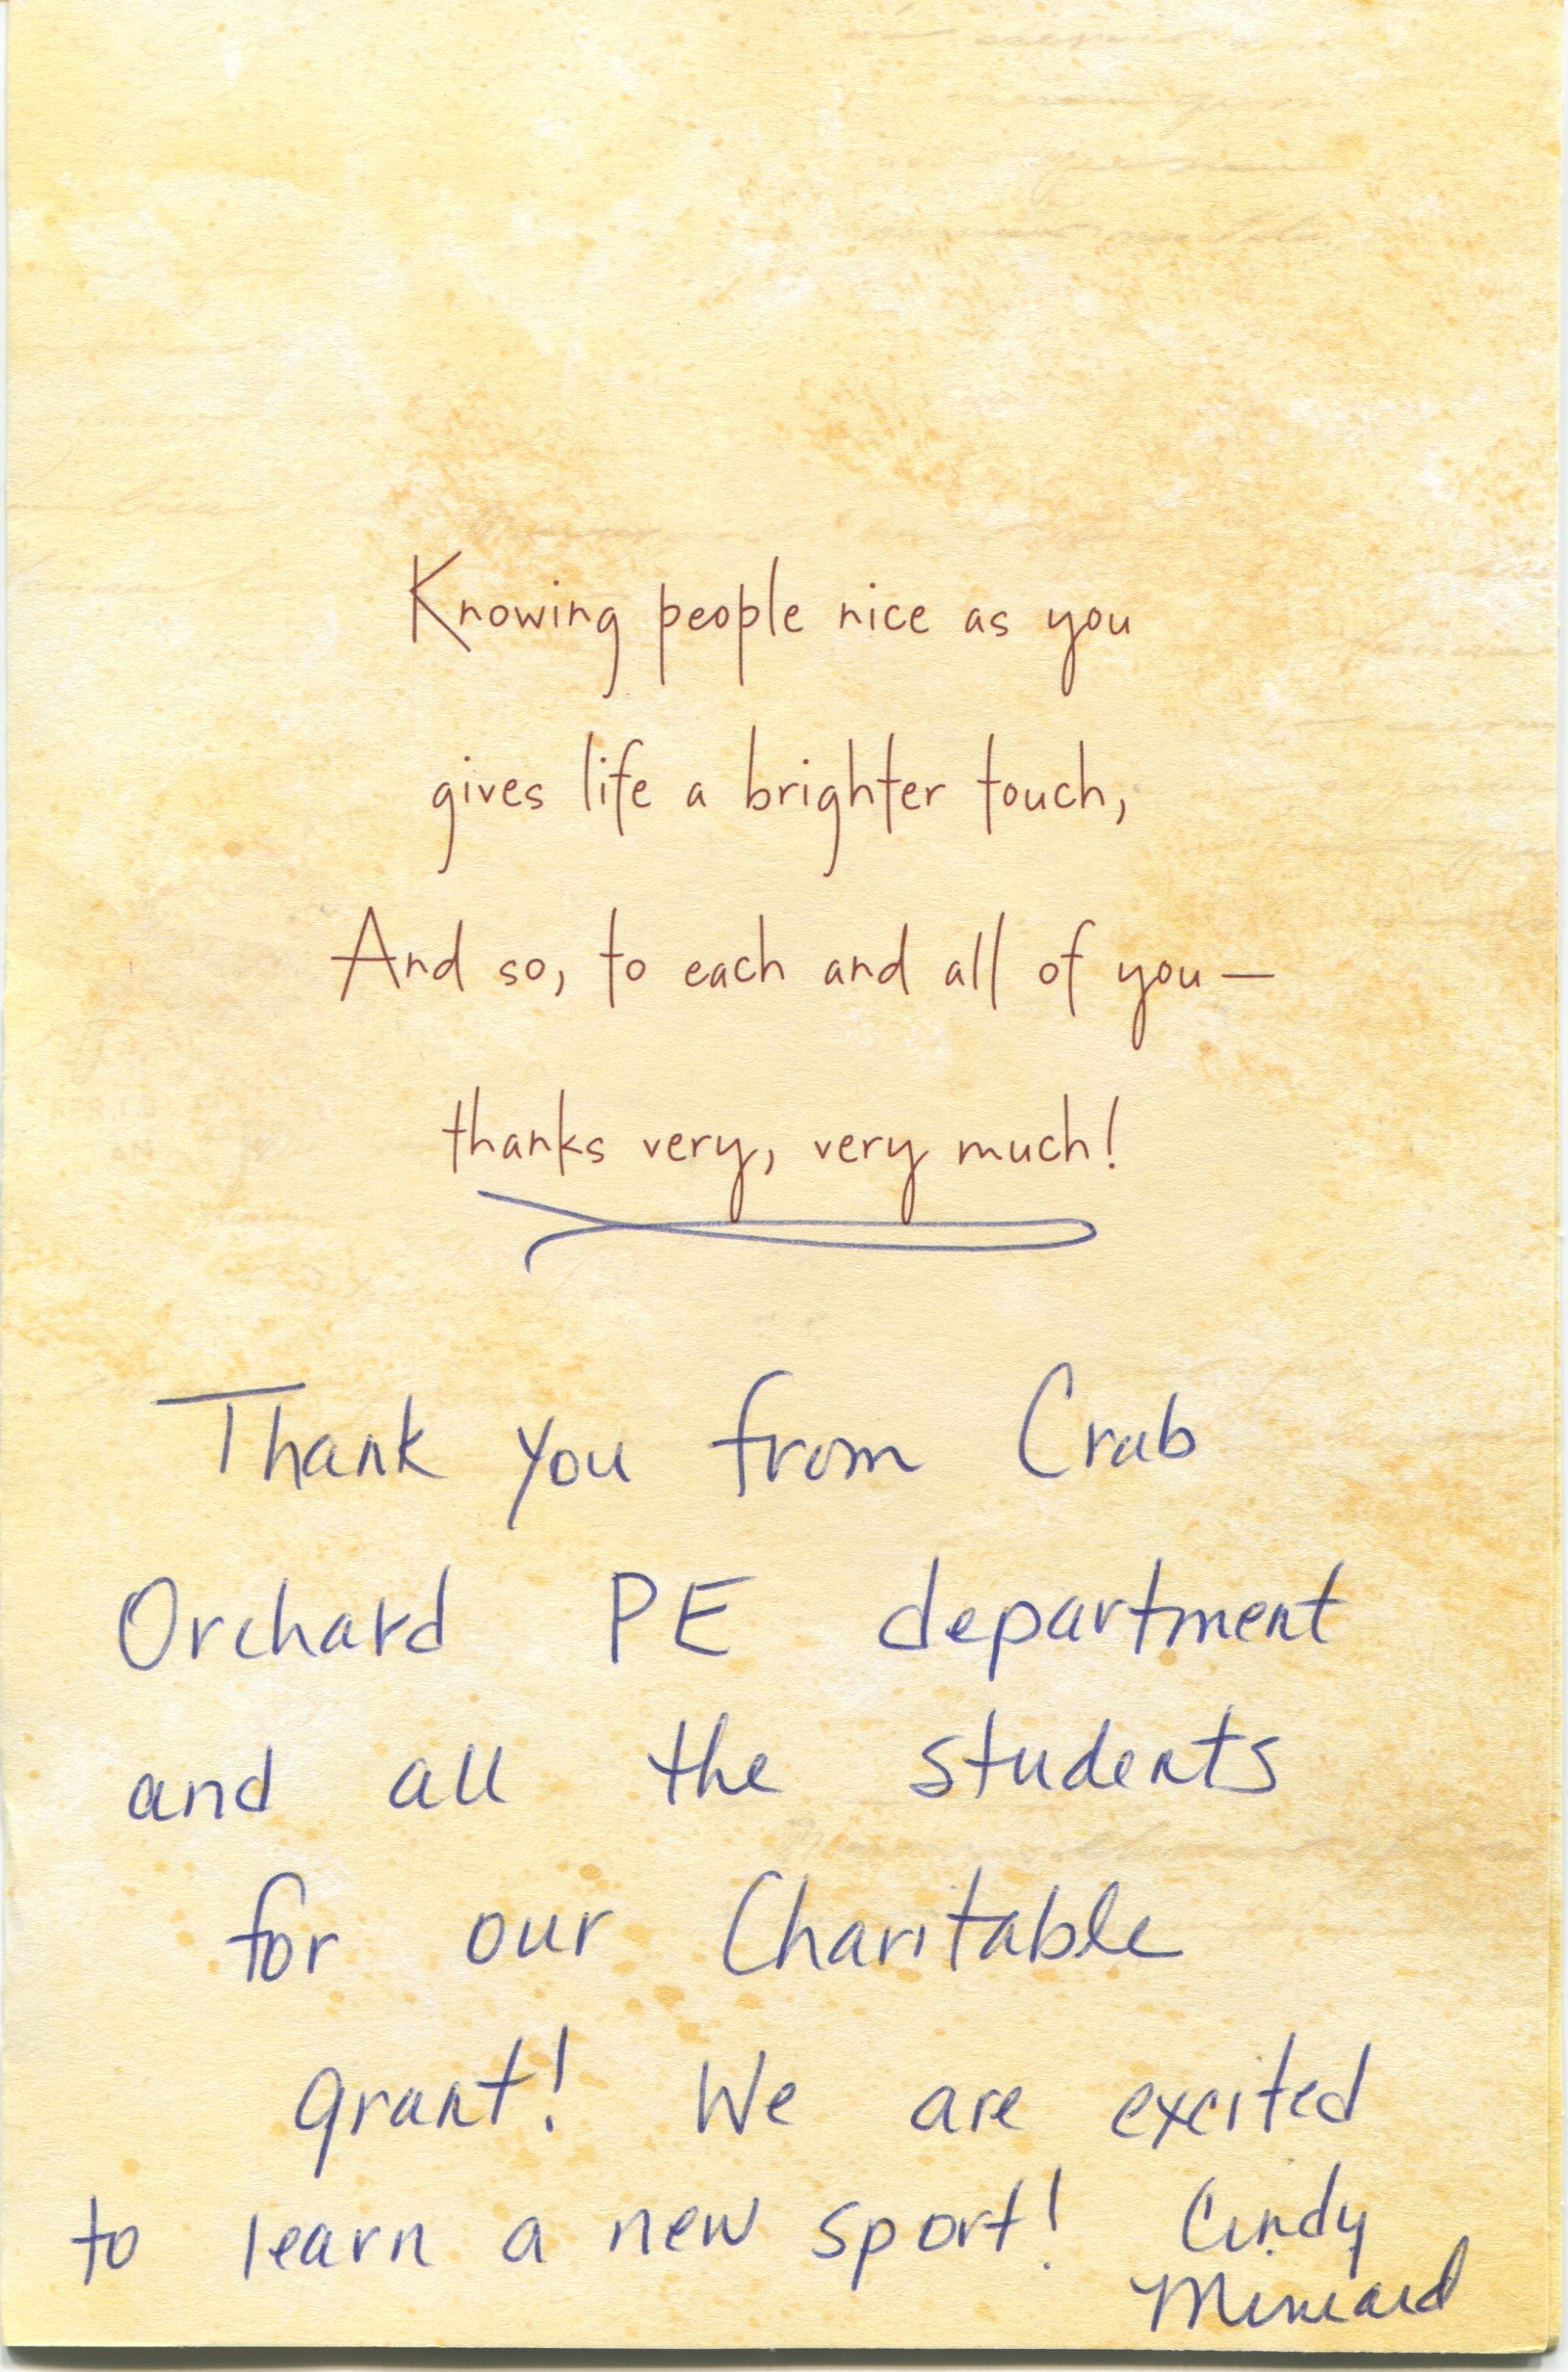 Knowing people nice as you
gives life a brighter touch,
And so, to each and all of you—
thanks very, very much!
Thank you from Crab
Orchard PE department
and all the students
for our Charitable
grant! We are excited
to learn a new sport! Cindy
Miniard